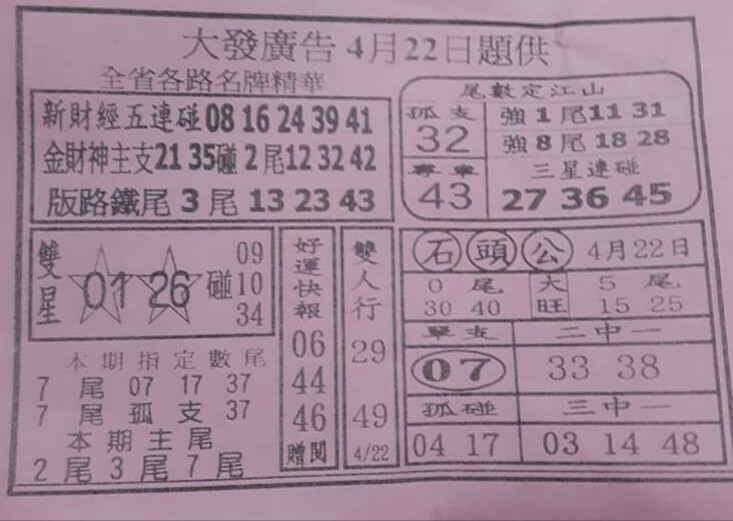 大發廣告 4月22日題供
全省各路名牌精華
新財經五連碰 08 16 24 39 41
金財神主支 21 35 碰 2 尾 12 32 42
版路鐵尾 3 尾 13 23 43
尾數定江山
孤支
32
強 1 尾 11 31
強 8 尾 18 28
專車
43
三星連碰
27 36 45
雙星
01 26
碰
09
10
34
本期指定數尾
7 尾 07 17 37
7 尾 孤支 37
本期主尾
2 尾 3 尾 7 尾
好運快報
06
44
46
贈閱
雙人行
29
49
4/22
石頭公 4月22日
0 尾
30 40
大旺
5 尾
15 25
單支
07
二中一
33 38
孤碰
04 17
三中一
03 14 48